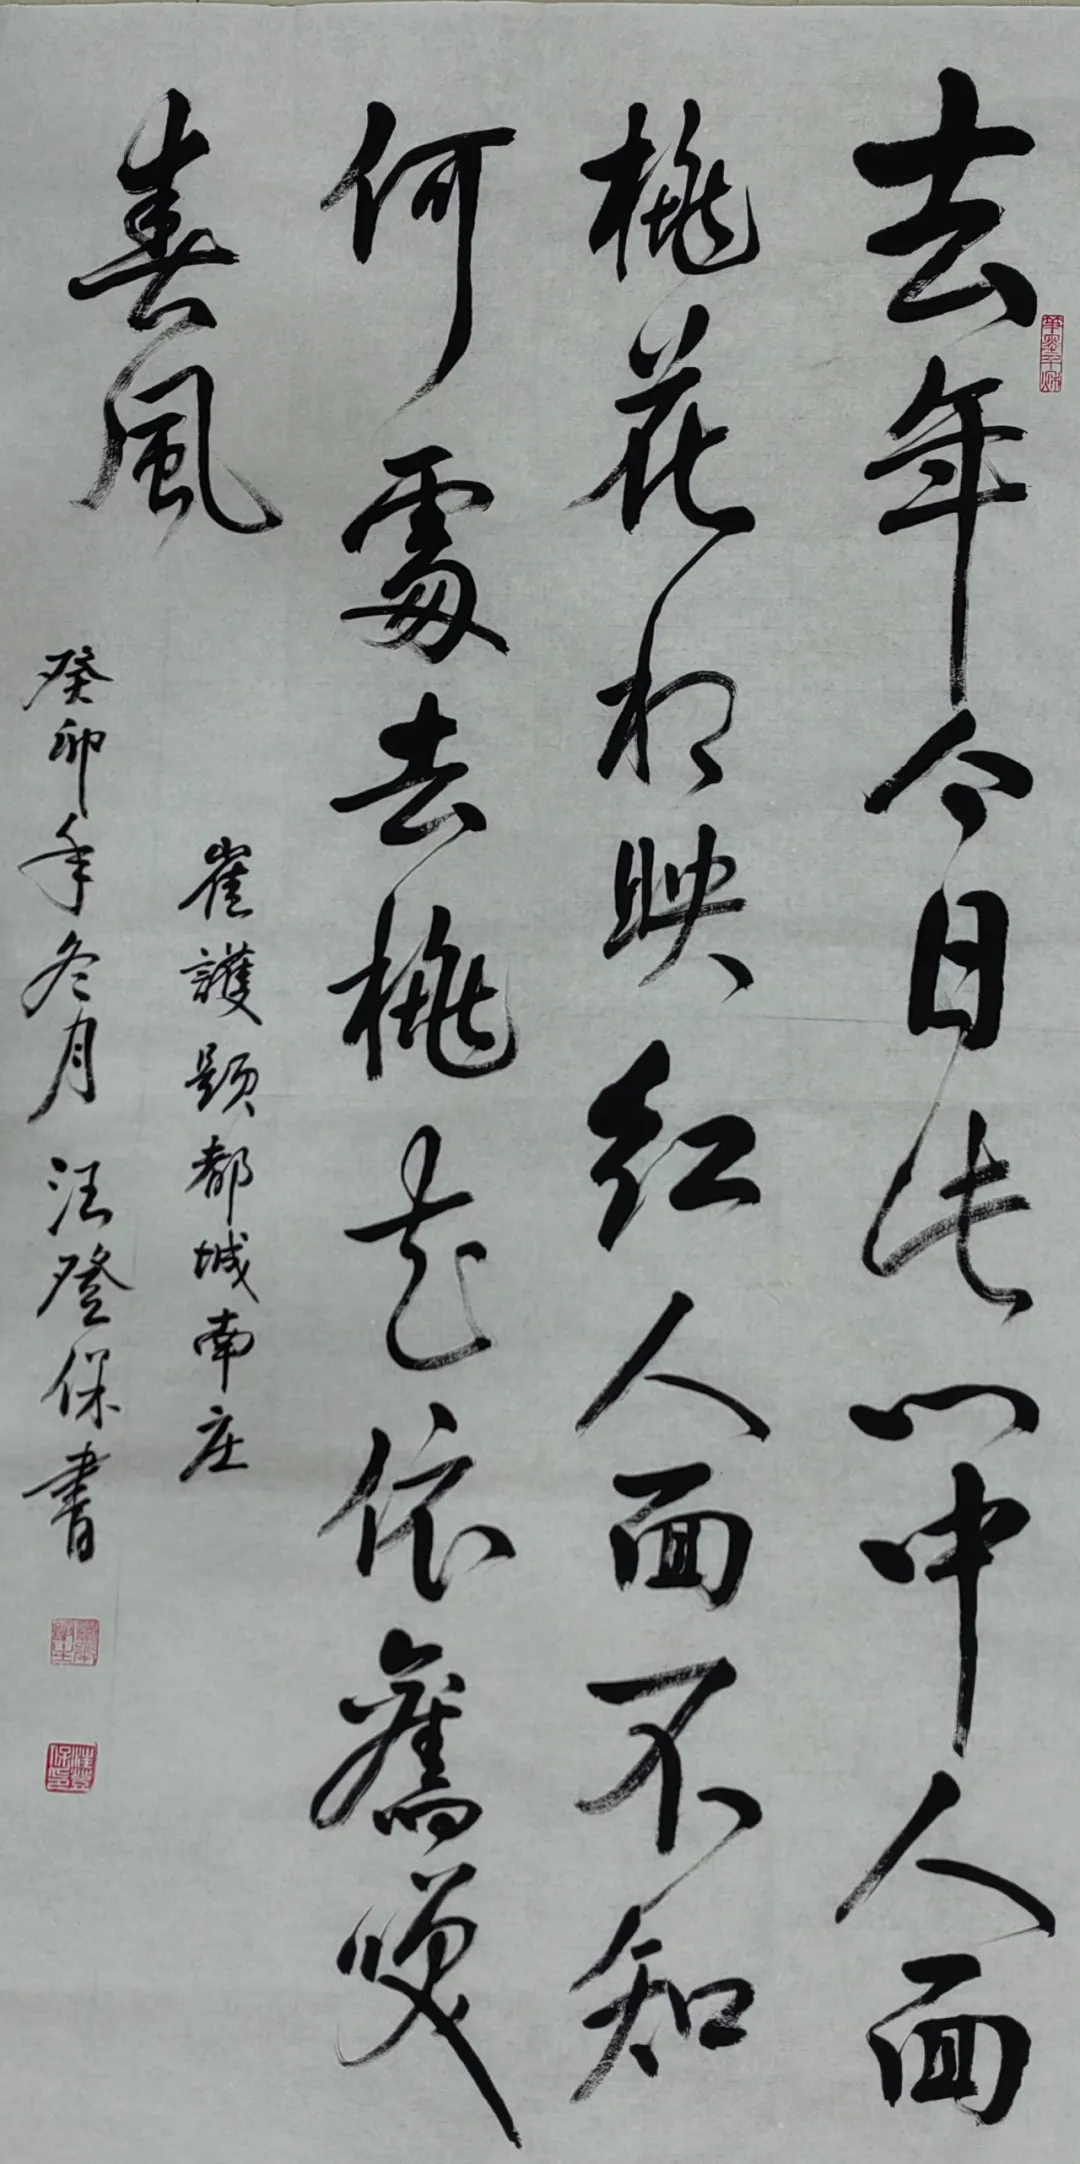 去年今日此门中人面
桃花相映红人面不知
何處去桃花依舊咲
春風
崔護题都城南庄
癸卯年冬月汪登保書
汪登保印